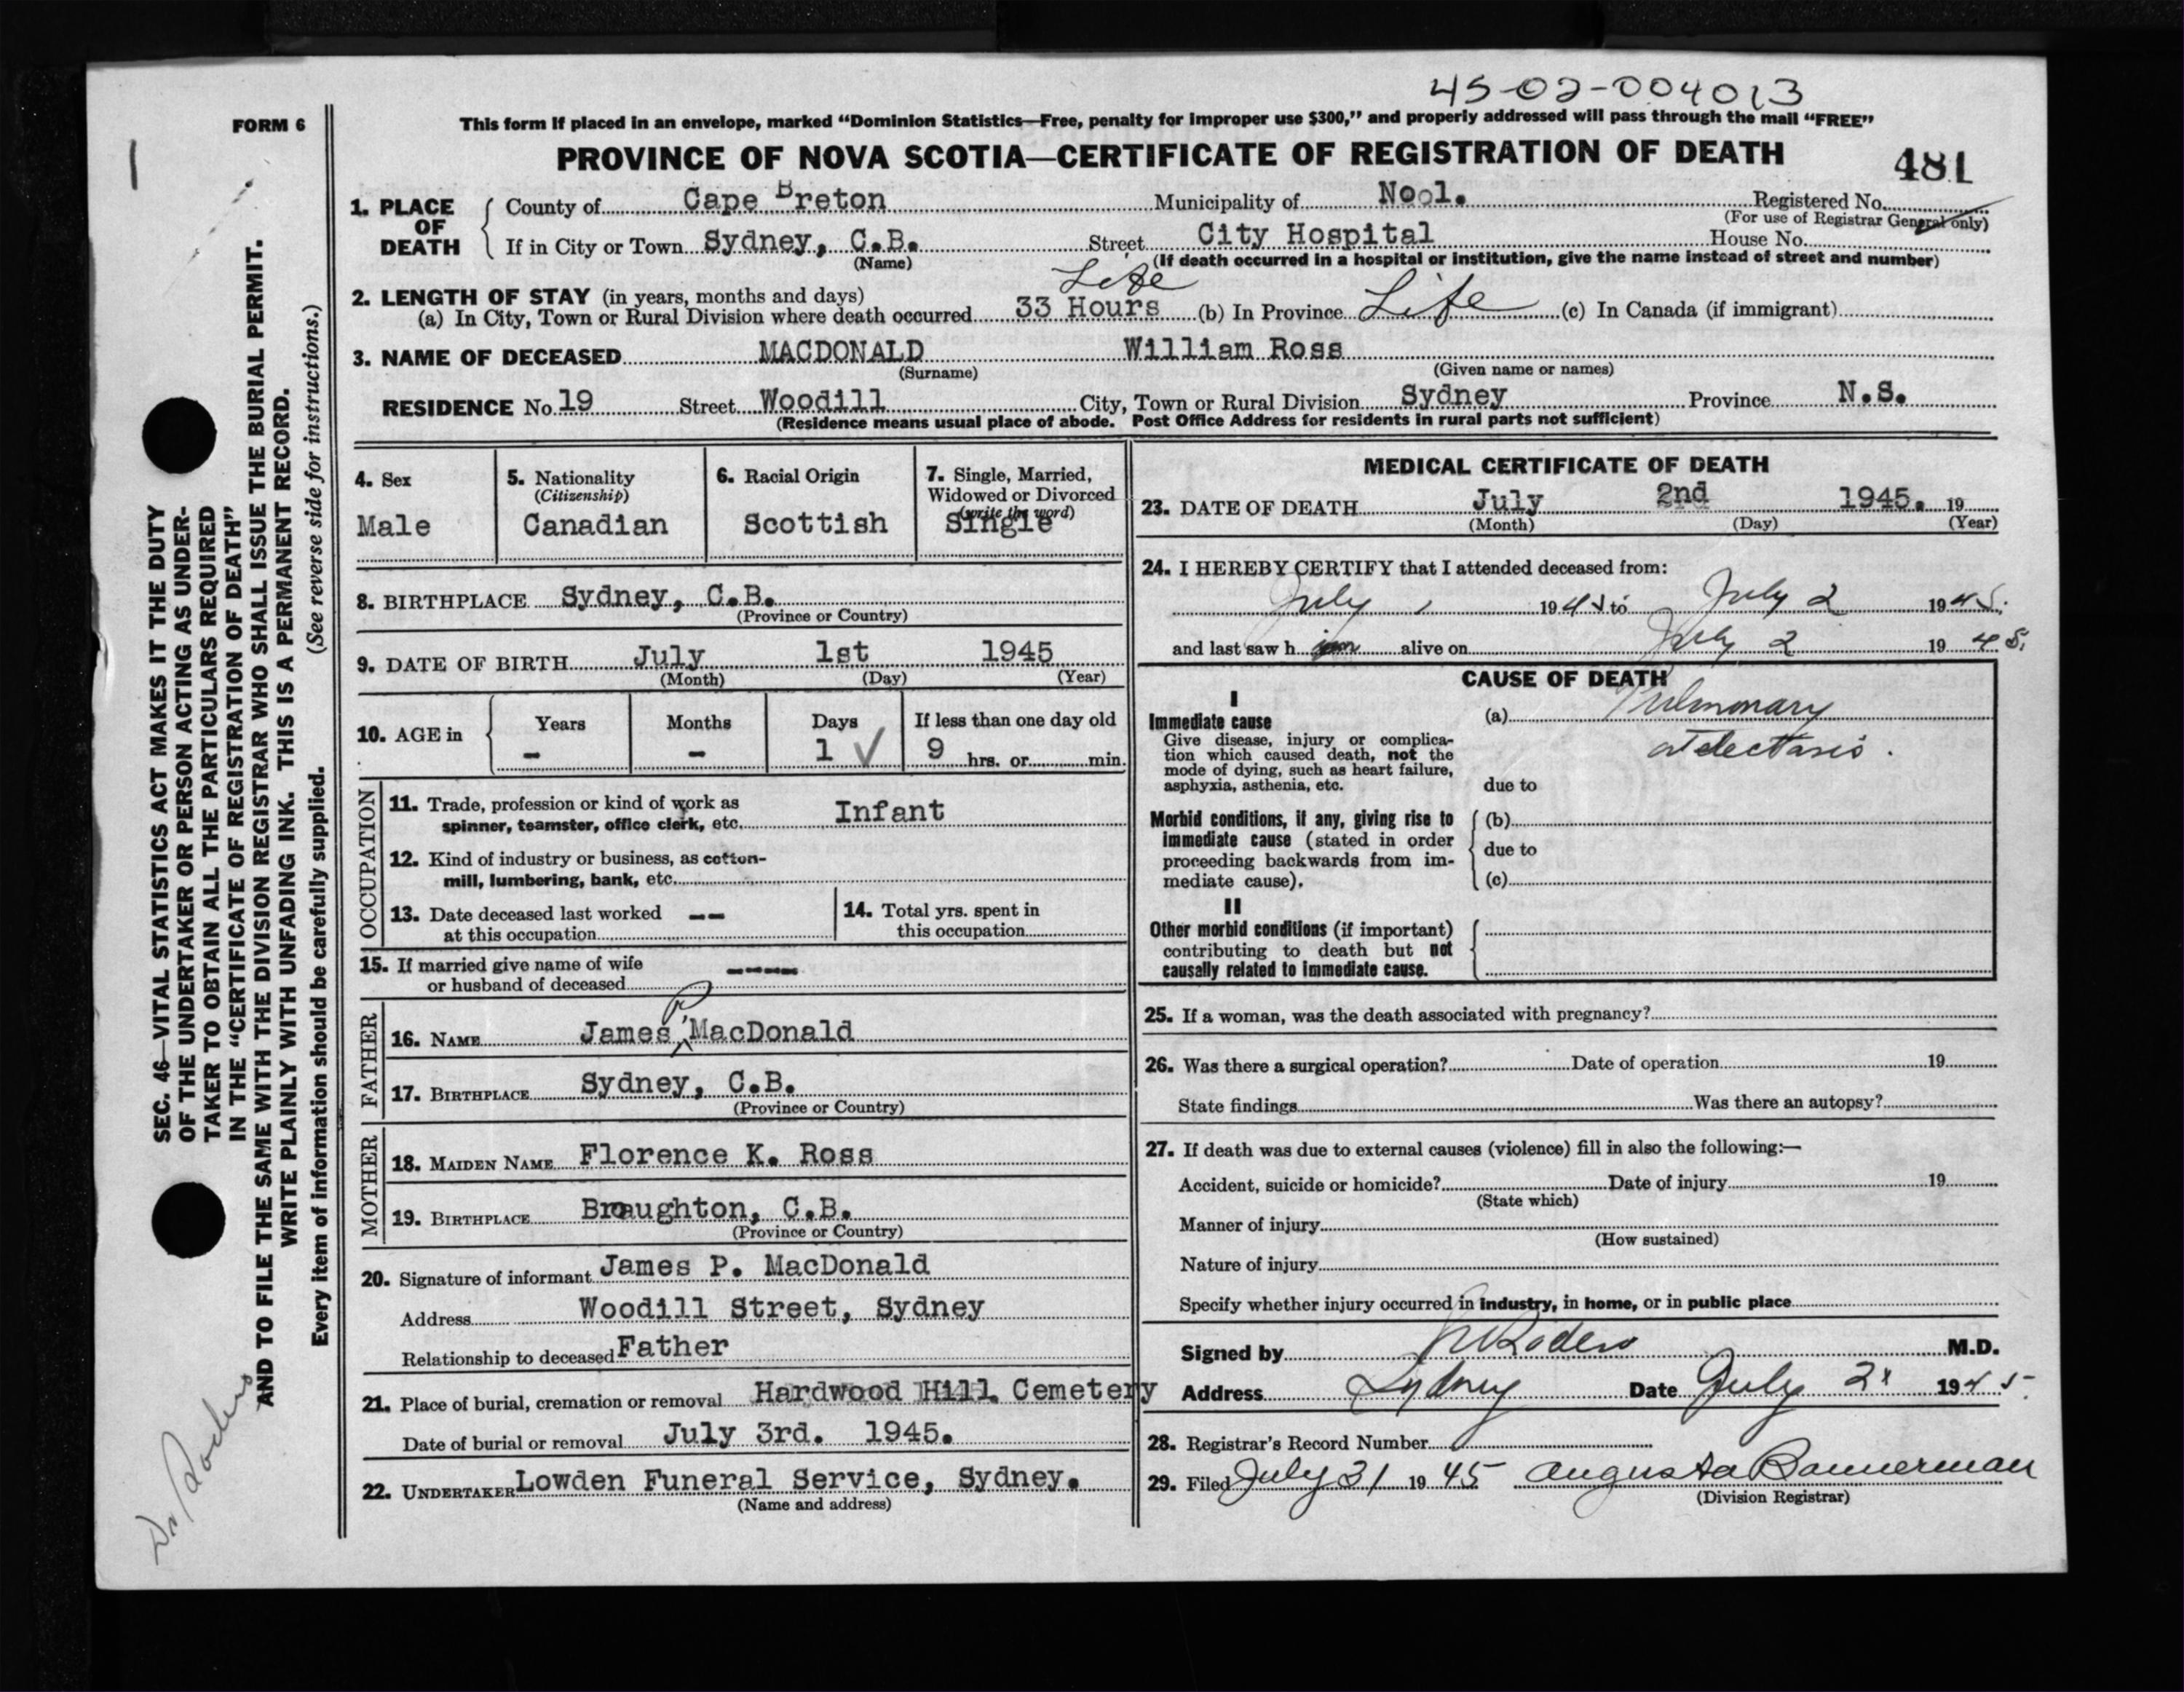 45-02-004013
FORM 6
This form if placed in an envelope, marked “Dominion Statistics—Free, penalty for improper use $300,” and properly addressed will pass through the mail “FREE”
PROVINCE OF NOVA SCOTIA—CERTIFICATE OF REGISTRATION OF DEATH
481
1. PLACE OF DEATH
County of Cape Breton Municipality of No 1. Registered No.
(For use of Registrar General only)
If in City or Town Sydney, C.B. Street City Hospital House No.
(Name) (If death occurred in a hospital or institution, give the name instead of street and number)
2. LENGTH OF STAY (in years, months and days) Life
(a) In City, Town or Rural Division where death occurred 33 Hours (b) In Province Life (c) In Canada (if immigrant)
3. NAME OF DECEASED MACDONALD William Ross
(Surname) (Given name or names)
RESIDENCE No. 19 Street Woodill City, Town or Rural Division Sydney Province N.S.
(Residence means usual place of abode. Post Office Address for residents in rural parts not sufficient)
4. Sex
Male
5. Nationality
(Citizenship)
Canadian
6. Racial Origin
Scottish
7. Single, Married,
Widowed or Divorced
(write the word)
Single
8. BIRTHPLACE Sydney, C.B.
(Province or Country)
9. DATE OF BIRTH July 1st 1945
(Month) (Day) (Year)
10. AGE in
Years Months Days If less than one day old
- - 1 ✓ 9 hrs. or min.
OCCUPATION
11. Trade, profession or kind of work as
spinner, teamster, office clerk, etc. Infant
12. Kind of industry or business, as cotton-
mill, lumbering, bank, etc.
13. Date deceased last worked --
at this occupation
14. Total yrs. spent in
this occupation
15. If married give name of wife ----
or husband of deceased
FATHER
16. NAME James P. MacDonald
17. BIRTHPLACE Sydney, C.B.
(Province or Country)
MOTHER
18. MAIDEN NAME Florence K. Ross
19. BIRTHPLACE Broughton, C.B.
(Province or Country)
20. Signature of informant James P. MacDonald
Address Woodill Street, Sydney
Relationship to deceased Father
21. Place of burial, cremation or removal Hardwood Hill Cemetery
Date of burial or removal July 3rd. 1945.
22. UNDERTAKER Lowden Funeral Service, Sydney.
(Name and address)
MEDICAL CERTIFICATE OF DEATH
23. DATE OF DEATH July 2nd 1945. 19
(Month) (Day) (Year)
24. I HEREBY CERTIFY that I attended deceased from:
July 1 1945 to July 2 1945.
and last saw h im alive on July 2 1945.
CAUSE OF DEATH
I
Immediate cause
Give disease, injury or complica-
tion which caused death, not the
mode of dying, such as heart failure,
asphyxia, asthenia, etc.
(a) Pulmonary
atelectasis.
due to
Morbid conditions, if any, giving rise to
immediate cause (stated in order
proceeding backwards from im-
mediate cause).
(b)
due to
(c)
II
Other morbid conditions (if important)
contributing to death but not
causally related to immediate cause.
25. If a woman, was the death associated with pregnancy?
26. Was there a surgical operation? Date of operation 19
State findings Was there an autopsy?
27. If death was due to external causes (violence) fill in also the following:—
Accident, suicide or homicide? Date of injury 19
(State which)
Manner of injury
(How sustained)
Nature of injury
Specify whether injury occurred in industry, in home, or in public place
Signed by Rodero M.D.
Address Sydney Date July 2 1945.
28. Registrar's Record Number
29. Filed July 31 1945 Augusta Bannerman
(Division Registrar)
SEC. 46—VITAL STATISTICS ACT MAKES IT THE DUTY
OF THE UNDERTAKER OR PERSON ACTING AS UNDER-
TAKER TO OBTAIN ALL THE PARTICULARS REQUIRED
IN THE “CERTIFICATE OF REGISTRATION OF DEATH”
AND TO FILE THE SAME WITH THE DIVISION REGISTRAR WHO SHALL ISSUE THE BURIAL PERMIT.
WRITE PLAINLY WITH UNFADING INK. THIS IS A PERMANENT RECORD.
Every item of information should be carefully supplied. (See reverse side for instructions.)
Dr Rodero